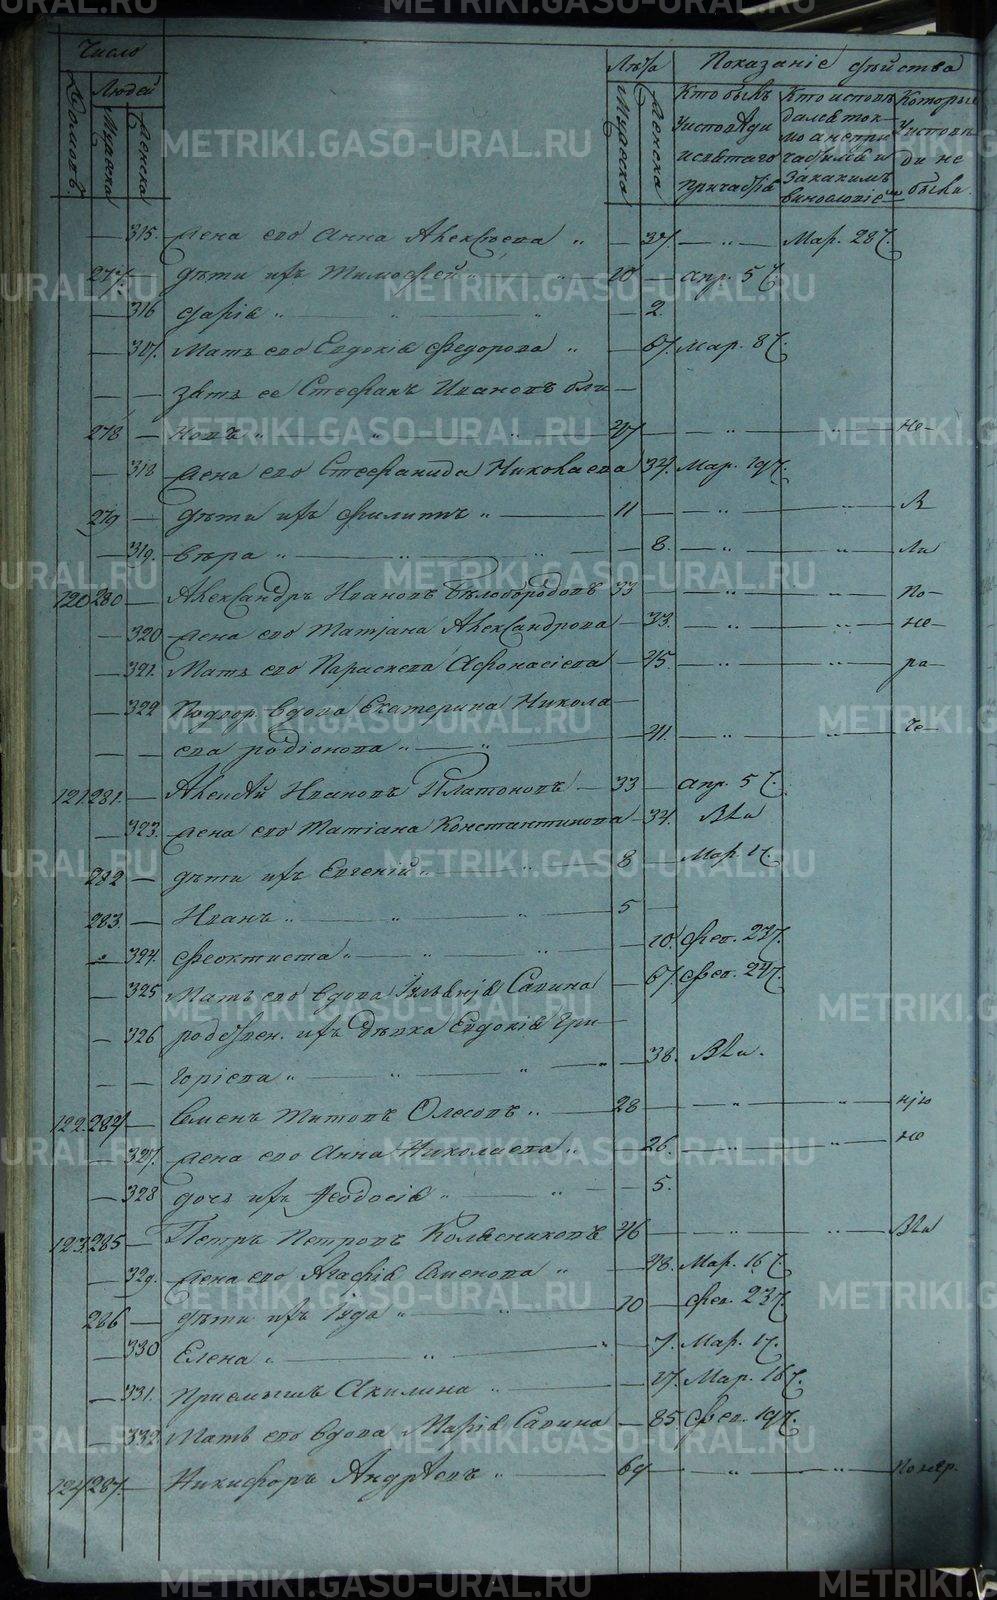 Число
Людей
Домовъ.
Мужеска
Женска
Лѣта
Мужеска
Женска
Показаніе дѣйства
Кто былъ
у исповѣди
и святаго
причастія
Кто исповѣ
дался ток
мо а не при
частился и
за какимъ
винословіемъ
Которые
у исповѣ
ди не
были.
315. жена его Анна Алексѣева „ — 37. — „ — Мар. 28.
277. дѣти ихъ Тимофей „ 10 — апр. 5
316 Марія „ — 2.
317. Мать его Евдокія Федорова „ — 67. Мар. 8
зять ее Стефанъ Ивановъ
278 новъ „ 47 — „ — „ — Не-
318 жена его Стефанида Николаева 34. Мар. 19
279 — дѣти ихъ Филиппъ „ — 11 — „ — „
319. Вѣра „ — 8. — „ — „ ли
120 280 — Александръ Ивановъ Бѣлобородовъ 33 — „ — „ — По-
320 жена его Татіана Александрова — 33. — „ — „ — не-
321. Мать его Параскева Афонасіева — 45. — „ — „ — ра-
322 Подвор. вдова Екатерина Никола-
ева Родіонова „ — 41. — „ — „ — че-
121 281. — Алексѣй Ивановъ Платоновъ — 33 — апр. 5
323. жена его Татіана Константинова — 34.
282 — дѣти ихъ Евгеній „ 8 — Мар. 1
283. — Иванъ „ 5 —
324. Феоктиста „ — 10. фев. 23
325 Мать его вдова Савина — 67. фев. 24
326 родствен. ихъ дѣвка Евдокія Гри-
горіева „ — 38.
122 284 — Семенъ Титовъ Олесовъ „ — 28 — „ — „ — нію
327. жена его Анна Николаева „ 26. — „ — „ — не
328 дочь ихъ Феодосія „ — 5.
123 285 — Петръ Петровъ Колесниковъ 46 — „ — „
329. жена его Агафія Семенова „ — 48. Мар. 16
286 — дѣти ихъ Іуда „ 10 — фев. 23
330 Елена „ — 7. Мар. 1
331. Приемышъ Акилина „ — 17. Мар. 16
332 Мать его вдова Марія Савина — 85. фев. 19
124 287. — Никифоръ Андреевъ „ — 69 — „ — „ — По нер.
METRIKI.GASO-URAL.RU